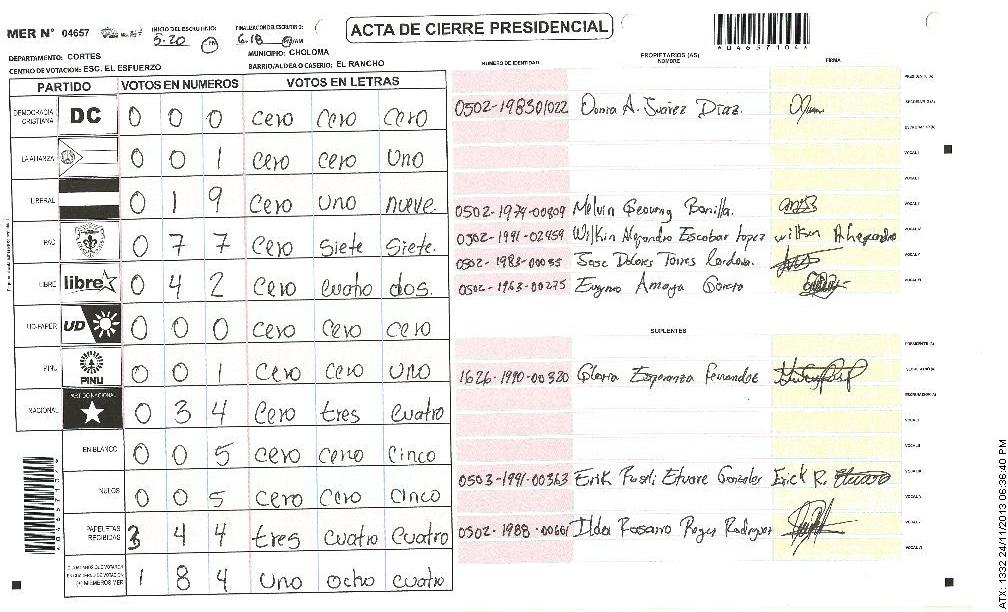 MER N° 04657
INICIO DEL ESCRUTINIO:
5:20 PM
FINALIZACION DEL ESCRUTINIO:
6:18 PM/AM
ACTA DE CIERRE PRESIDENCIAL
*04657104*
DEPARTAMENTO: CORTES
MUNICIPIO: CHOLOMA
CENTRO DE VOTACION: ESC. EL ESFUERZO
BARRIO/ALDEA O CASERIO: EL RANCHO
PARTIDO VOTOS EN NUMEROS VOTOS EN LETRAS
DEMOCRACIA CRISTIANA DC 0 0 0 cero cero cero
LA ALIANZA 0 0 1 cero cero uno
LIBERAL 0 1 9 cero uno nueve.
PAC 0 7 7 cero siete siete.
LIBRE libre 0 4 2 cero cuatro dos.
UD-FAPER UD 0 0 0 cero cero cero
PINU PINU 0 0 1 cero cero uno
NACIONAL PARTIDO NACIONAL 0 3 4 cero tres cuatro
EN BLANCO 0 0 5 cero cero cinco
NULOS 0 0 5 cero cero cinco
PAPELETAS RECIBIDAS 3 4 4 tres cuatro cuatro
CIUDADANOS QUE VOTARON EN CUADERNO DE VOTACION (+) MIEMBROS MER 1 8 4 uno ocho cuatro
PROPIETARIOS (AS)
NUMERO DE IDENTIDAD NOMBRE FIRMA
PRESIDENTE (A)
0502-198301022 A. Suarez Diaz. SECRETARIO (A)
ESCRUTADOR (A)
VOCAL I
VOCAL II
0502-1974-00809 Melvin Geovany Bonilla. VOCAL III
0502-1991-02459 Wilkin Alejandro Escobar Lopez wilkin Alejandro VOCAL IV
0502-1983-00035 Jose Dolores Torres Cardova. VOCAL V
0502-1963-00275 Amaya VOCAL VI
SUPLENTES
PRESIDENTE (A)
1626-1990-00320 Gloria Esperanza Fernandez SECRETARIO (A)
ESCRUTADOR (A)
VOCAL I
VOCAL II
0503-1991-00363 Erik Gonzales Erick R. VOCAL III
VOCAL IV
0502-1988-00601 Ilda Rosario Rodriguez VOCAL V
VOCAL VI
ATX: 1332 24/11/2013 06:36:40 PM